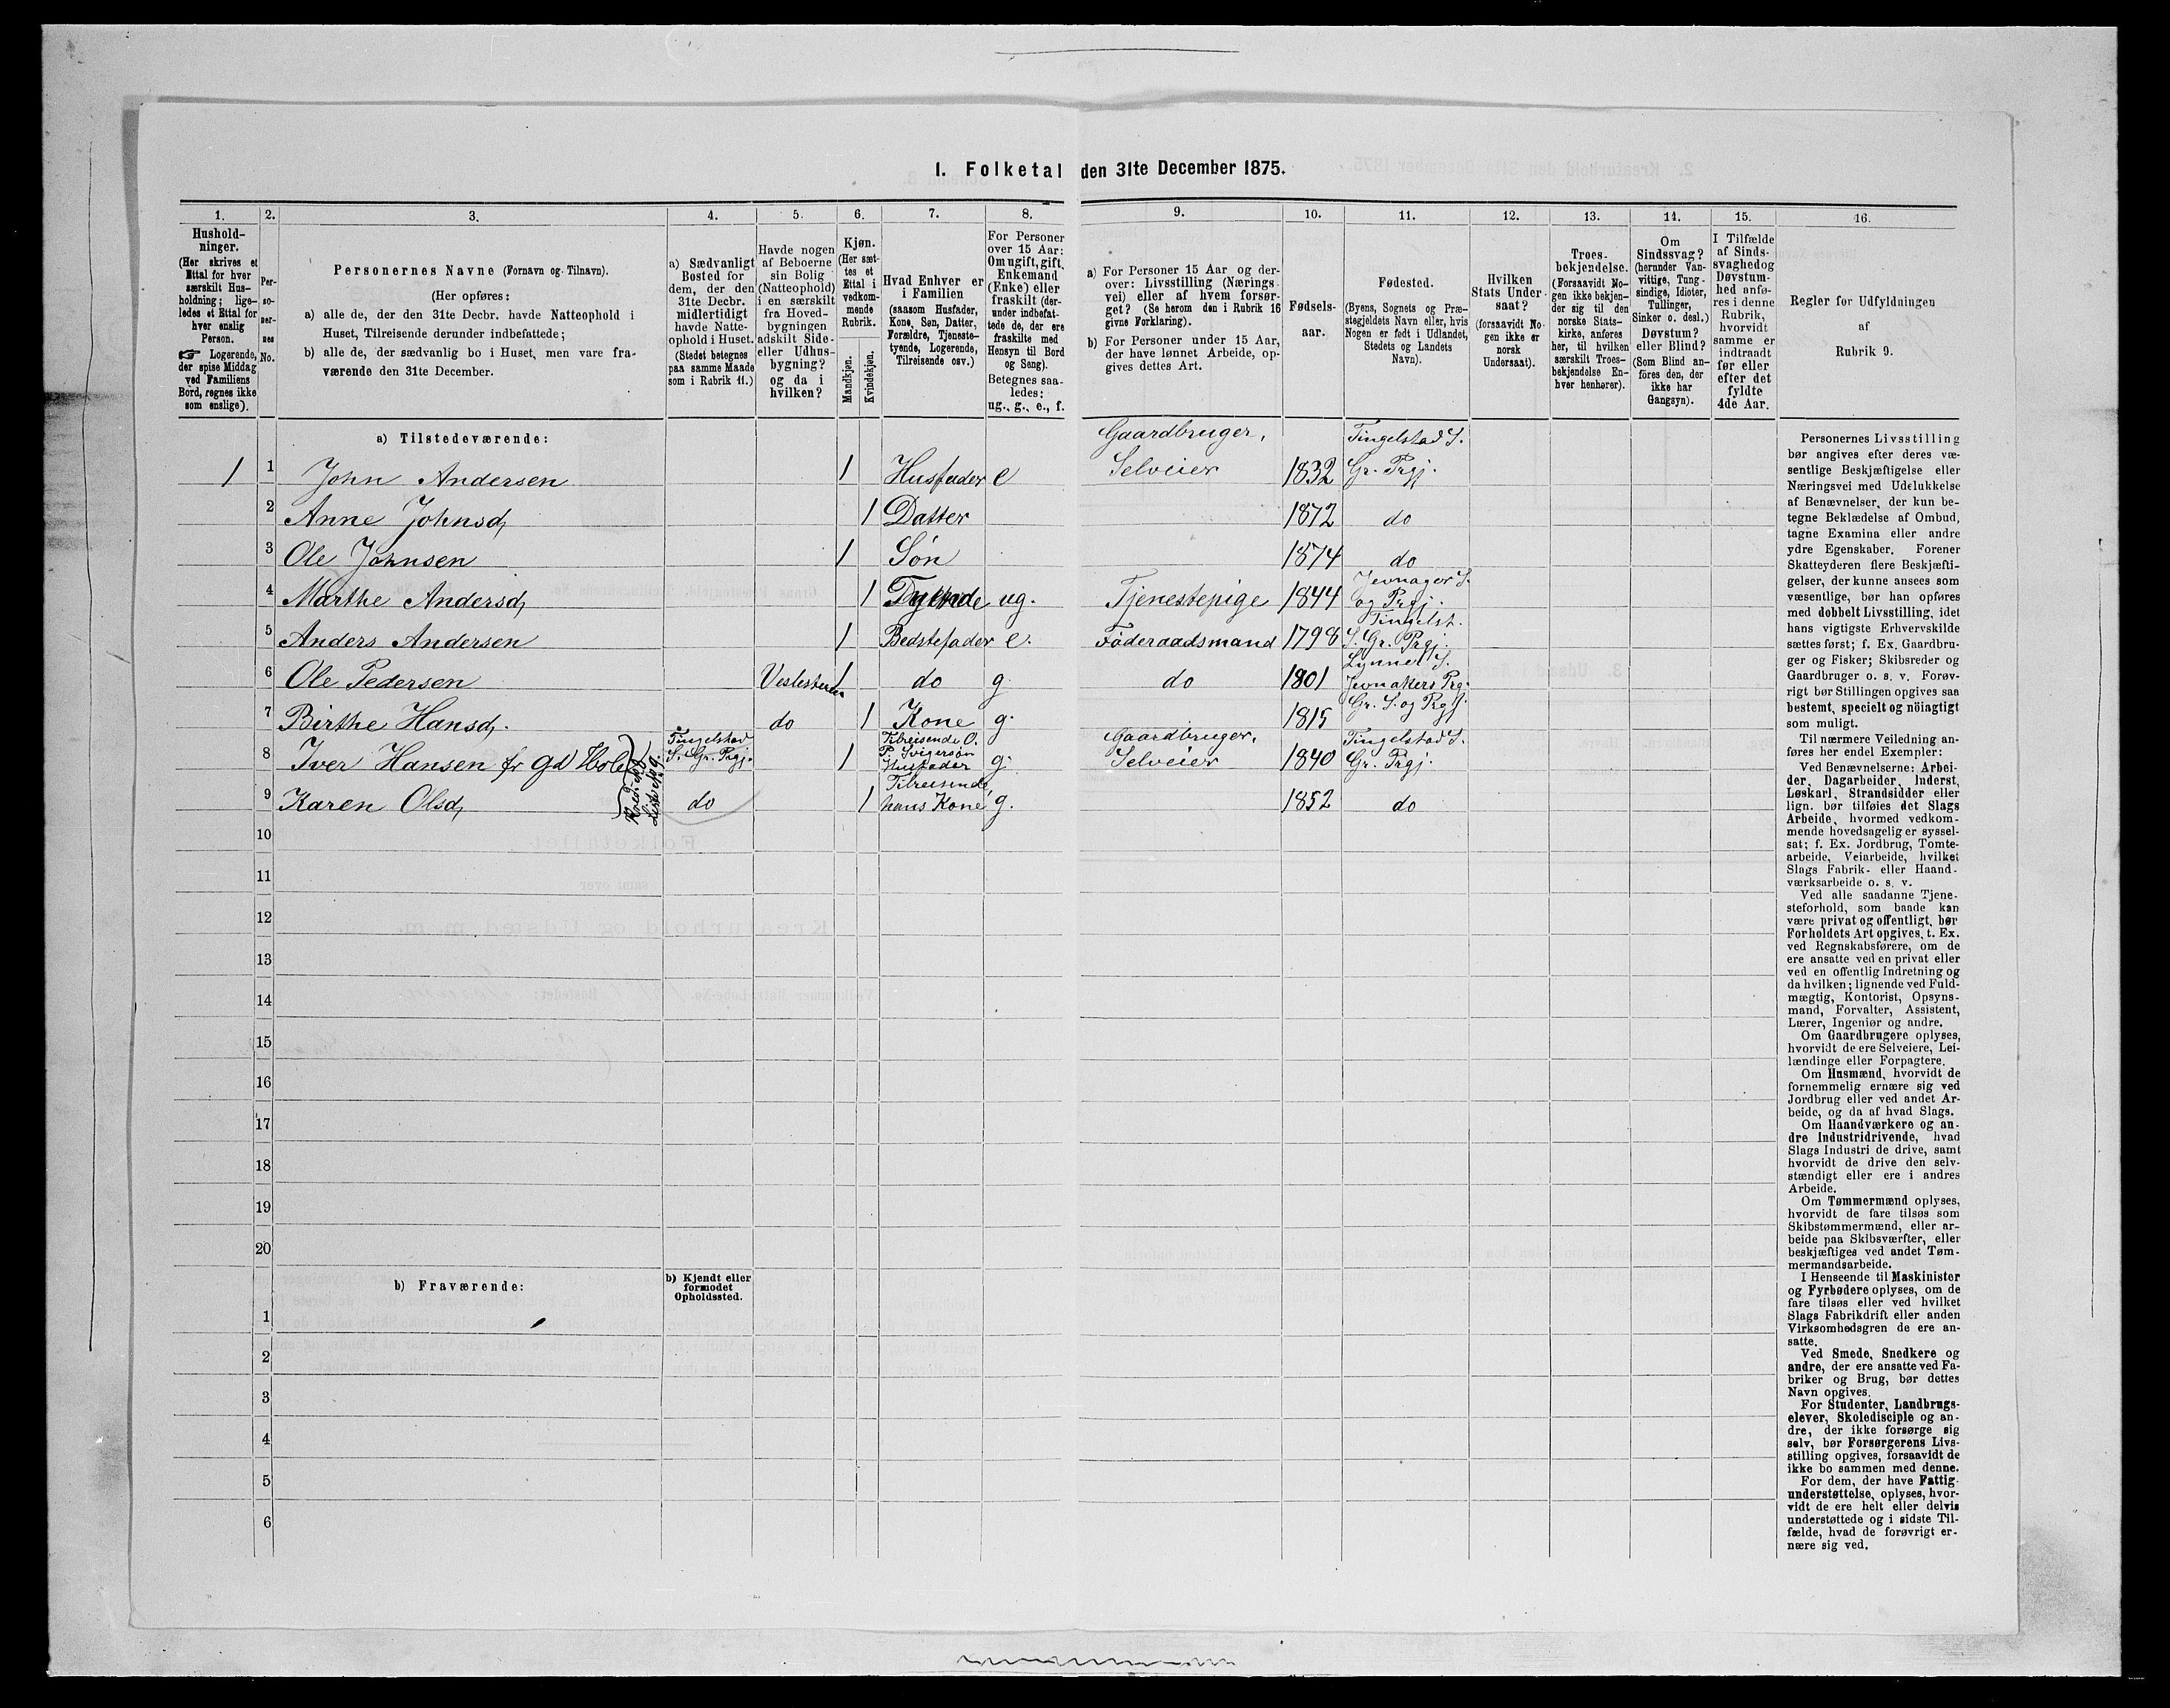 1. Folketal den 31te December 1875.
1. 2. 3. 4. 5. 6. 7. 8. 9. 10. 11. 12. 13. 14. 15. 16.
Hushold-
ninger.
(Her skrives et
Ettal for hver
særskilt Hus-
holdning; lige-
ledes et Ettal for
hver enslig
Person.
☞ Logerende,
der spise Middag
ved Familiens
Bord, regnes ikke
som enslige).
Per-
so-
ner-
nes
No.
Personernes Navne (Fornavn og Tilnavn).
(Her opføres:
a) alle de, der den 31te Decbr. havde Natteophold i
Huset, Tilreisende derunder indbefattede;
b) alle de, der sædvanlig bo i Huset, men vare fra-
værende den 31te December.
a) Sædvanligt
Bosted for
dem, der den
31te Decbr.
midlertidigt
havde Natte-
ophold i Huset.
(Stedet betegnes
paa samme Maade
som i Rubrik 11.)
Havde nogen
af Beboerne
sin Bolig
(Natteophold)
i en særskilt
fra Hoved-
bygningen
adskilt Side-
eller Udhus-
bygning?
og da i
hvilken?
Kjøn.
(Her sæt-
tes et
Ettal i
vedkom-
mende
Rubrik.
Mandkjøn.
Kvindekjøn.
Hvad Enhver er
i Familien
(saasom Husfader,
Kone, Søn, Datter,
Forældre, Tjeneste-
tyende, Logerende,
Tilreisende osv.)
For Personer
over 15 Aar:
Om ugift, gift,
Enkemand
(Enke) eller
fraskilt (der-
under indbefat-
tede de, der ere
fraskilte med
Hensyn til Bord
og Seng).
Betegnes saa-
ledes:
ug., g., e., f.
a) For Personer 15 Aar og der-
over: Livsstilling (Nærings
vei) eller af hvem forsør-
get? (Se herom den i Rubrik 16
givne Forklaring).
b) For Personer under 15 Aar,
der have lønnet Arbeide, op-
gives dettes Art.
Fødsels-
aar.
Fødested.
(Byens, Sognets og Præ-
stegjeldets Navn eller, hvis
Nogen er født i Udlandet,
Stedets og Landets
Navn).
Hvilken
Stats Under-
saat?
(forsaavidt No-
gen ikke er
norsk
Undersaat).
Troes-
bekjendelse.
(Forsaavidt No-
gen ikke bekjen-
der sig til den
norske Stats-
kirke, anføres
her, til hvilken
særskilt Troes-
bekjendelse En-
hver henhører).
Om
Sindssvag?
(herunder Van-
vittige, Tung-
sindige, Idioter,
Tullinger,
Sinker o. desl.)
Døvstum?
eller Blind?
(Som Blind an-
føres den, der
ikke har
Gangsyn).
I Tilfælde
af Sinds-
svaghed og
Døvstum-
hed anfø-
res i denne
Rubrik,
hvorvidt
samme er
indtraadt
før eller
efter det
fyldte
4de Aar.
Regler for Udfyldningen
af
Rubrik 9.
a) Tilstedeværende:
Gaardbruger, Tingelstad S.
1 1 John Andersen 1 Husfader e Selveier 1832 Gr. Prgj.
2 Anne Johnsd, 1 Datter 1872 do
3 Ole Johnsen 1 Søn 1874 do
Jevnager S.
4 Marthe Andersd, 1 Tyende ug. Tjenestepige 1844 og Prgj.
Tingelst.
5 Anders Andersen 1 Bedstefader e. Føderaadsmand 1798 S. Gr. Prgj.
Lynner S.
6 Ole Pedersen 1 do g do 1801 Jevnakers Prg.
7 Birthe Hansd. do 1 Kone g. 1815 Gr. S. og Prgj.
Tingelstad Tilreisende O. Gaardbruger, Tingelstad S.
8 Iver Hansen fr gd Hole S. Gr. Prgj. 1 P. Svigersøn Husfader g. Selveier 1840 Gr. Prgj.
Tilreisende,
9 Karen Olsd, do 1 hans Kone g. 1852 do
10
11
12
13
14
15
16
17
18
19
20
b) Fraværende:
b) Kjendt eller
formodet
Opholdssted.
1
2
3
4
5
6
Personernes Livsstilling
bør angives efter deres væ-
sentlige Beskjæftigelse eller
Næringsvei med Udelukkelse
af Benævnelser, der kun be-
tegne Beklædelse af Ombud,
tagne Examina eller andre
ydre Egenskaber. Forener
Skatteyderen flere Beskjæfti-
gelser, der kunne ansees som
væsentlige, bør han opføres
med dobbelt Livsstilling, idet
hans vigtigste Erhvervskilde
sættes først; f. Ex. Gaardbru-
ger og Fisker; Skibsreder og
Gaardbruger o. s. v. Forøv-
rigt bør Stillingen opgives saa
bestemt, specielt og nöiagtigt
som muligt.
Til nærmere Veiledning an-
føres her endel Exempler:
Ved Benævnelserne: Arbei-
der, Dagarbeider, Inderst,
Løskarl, Strandsidder eller
lign. bør tilføies det Slags
Arbeide, hvormed vedkom-
mende hovedsagelig er syssel-
sat; f. Ex. Jordbrug, Tomte-
arbeide, Veiarbeide, hvilket
Slags Fabrik- eller Haand-
værksarbeide o. s. v.
Ved alle saadanne Tjene-
steforhold, som baade kan
være privat og offentligt, bør
Forholdets Art opgives, t. Ex.
ved Regnskabsførere, om de
ere ansatte ved en privat eller
ved en offentlig Indretning og
da hvilken; lignende ved Fuld-
mægtig, Kontorist, Opsyns-
mand, Forvalter, Assistent,
Lærer, Ingeniør og andre.
Om Gaardbrugere oplyses,
hvorvidt de ere Selveiere, Lei-
lændinge eller Forpagtere.
Om Husmænd, hvorvidt de
fornemmelig ernære sig ved
Jordbrug eller ved andet Ar-
beide, og da af hvad Slags.
Om Haandværkere og an-
dre Industridrivende, hvad
Slags Industri de drive, samt
hvorvidt de drive den selv-
stændigt eller ere i andres
Arbeide.
Om Tømmermænd oplyses,
hvorvidt de fare tilsøs som
Skibstømmermænd, eller ar-
beide paa Skibsværfter, eller
beskjæftiges ved andet Tøm-
mermandsarbeide.
I Henseende til Maskinister
og Fyrbødere oplyses, om de
fare tilsøs eller ved hvilket
Slags Fabrikdrift eller anden
Virksomhedsgren de ere an-
satte.
Ved Smede, Snedkere og
andre, der ere ansatte ved Fa-
briker og Brug, bør dettes
Navn opgives.
For Studenter, Landbrugs-
elever, Skoledisciple og an-
dre, der ikke forsørge sig
selv, bør Forsørgerens Livs-
stilling opgives, forsaavidt de
ikke bo sammen med denne.
For dem, der have Fattig-
understøttelse, oplyses, hvor-
vidt de ere helt eller delvis
understøttede og i sidste Til-
fælde, hvad de forøvrigt er-
nære sig ved.